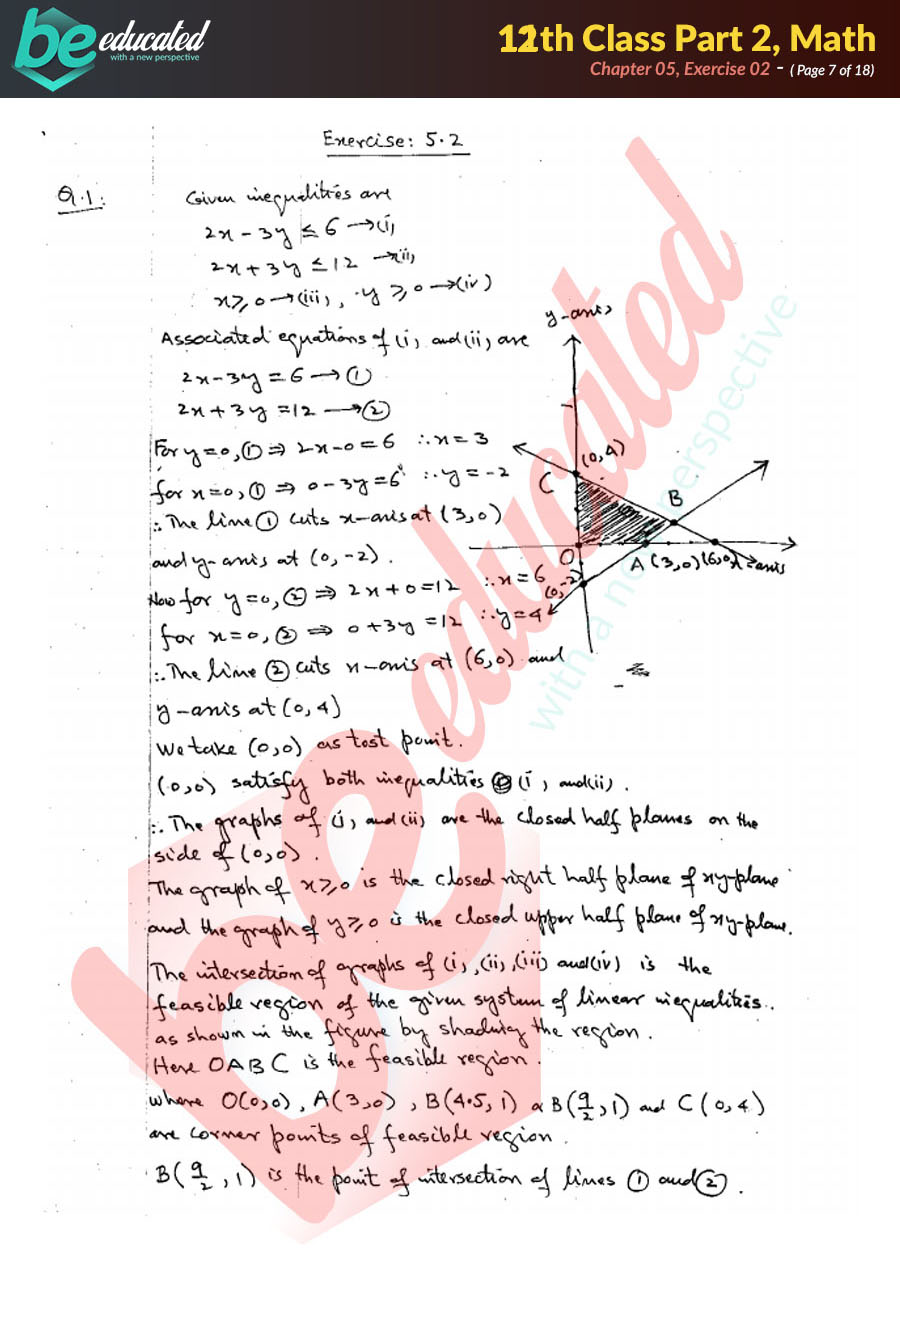 be educated
with a new perspective
12th Class Part 2, Math
Chapter 05, Exercise 02 - ( Page 7 of 18)
Exercise: 5.2
Q.1:
Given inequalities are
2x - 3y ≤ 6 → (i)
2x + 3y ≤ 12 → (ii)
x ≥ 0 → (iii), y ≥ 0 → (iv)
Associated equations of (i) and (ii) are
2x - 3y = 6 → ①
2x + 3y = 12 → ②
For y = 0, ① ⇒ 2x - 0 = 6 ∴ x = 3
for x = 0, ① ⇒ 0 - 3y = 6 ∴ y = -2
∴ The line ① cuts x-axis at (3,0)
and y-axis at (0, -2).
Now for y = 0, ② ⇒ 2x + 0 = 12 ∴ x = 6
for x = 0, ② ⇒ 0 + 3y = 12 ∴ y = 4
∴ The line ② cuts x-axis at (6,0) and
y-axis at (0, 4)
y-axis
(0,4)
C
B
O
A (3,0) (6,0) x-axis
(0,-2)
We take (0,0) as test point.
(0,0) satisfy both inequalities (i) and (ii).
∴ The graphs of (i) and (ii) are the closed half planes on the
side of (0,0).
The graph of x ≥ 0 is the closed right half plane of xy-plane
and the graph of y ≥ 0 is the closed upper half plane of xy-plane.
The intersection of graphs of (i), (ii), (iii) and (iv) is the
feasible region of the given system of linear inequalities.
as shown in the figure by shading the region.
Here OABC is the feasible region.
where O(0,0), A(3,0), B(4.5, 1) or B(9/2, 1) and C(0, 4)
are corner points of feasible region.
B(9/2, 1) is the point of intersection of lines ① and ②.
be educated
with a new perspective